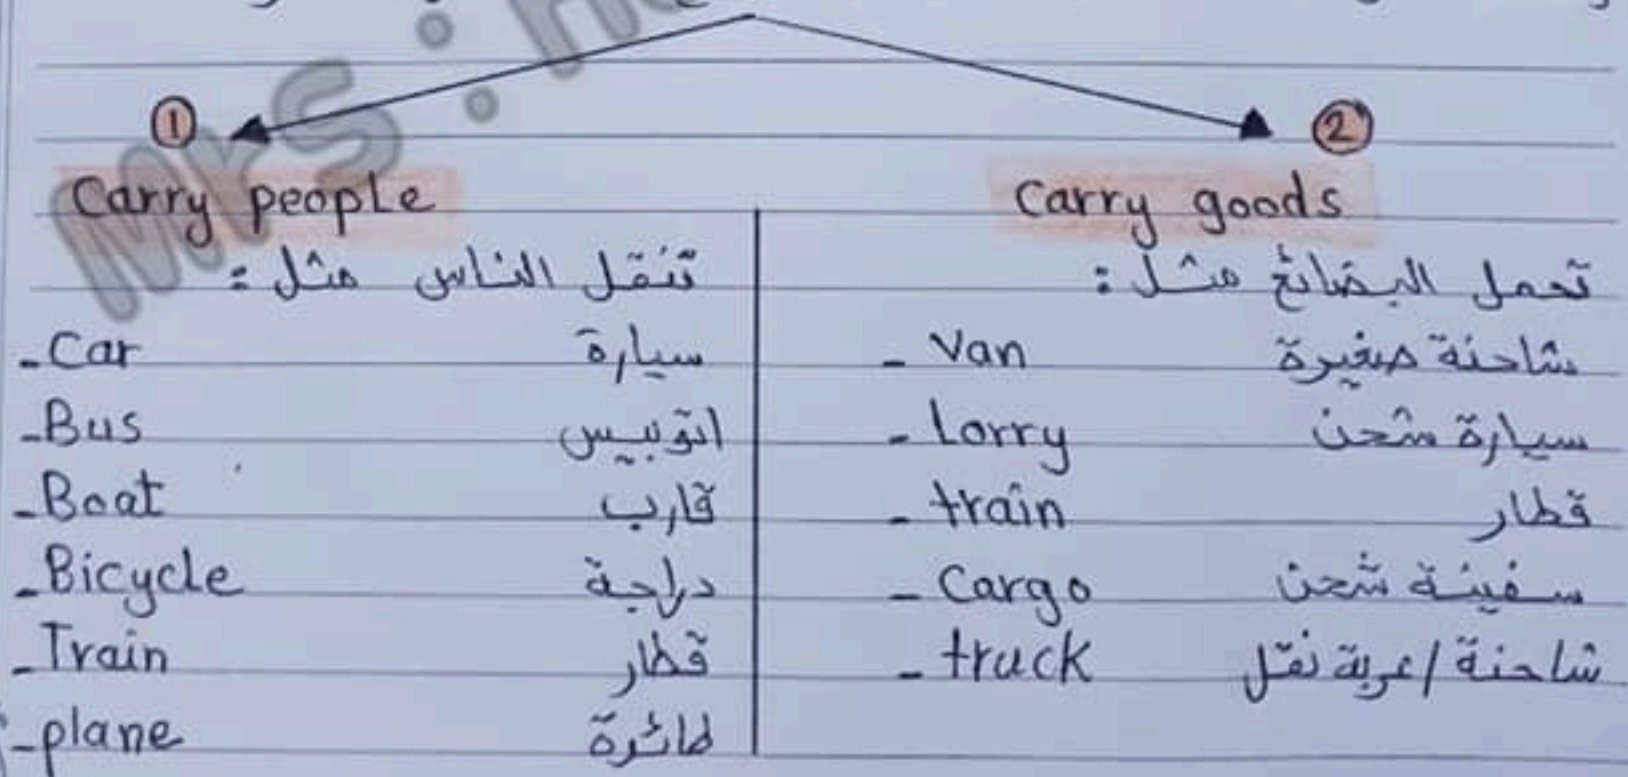 Mrs:
① ②
Carry people
تنقل الناس مثل :
- Car سيارة
- Bus اتوبيس
- Boat قارب
- Bicycle دراجة
- Train قطار
- plane طائرة
Carry goods
تحمل البضائع مثل :
- Van شاحنة صغيرة
- lorry سيارة شحن
- train قطار
- Cargo سفينة شحن
- truck شاحنة / عربة نقل